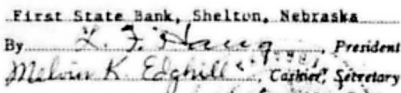 First State Bank, Shelton, Nebraska
By L. F. Haug, President
Melvin K. Edghill, Cashier, Secretary